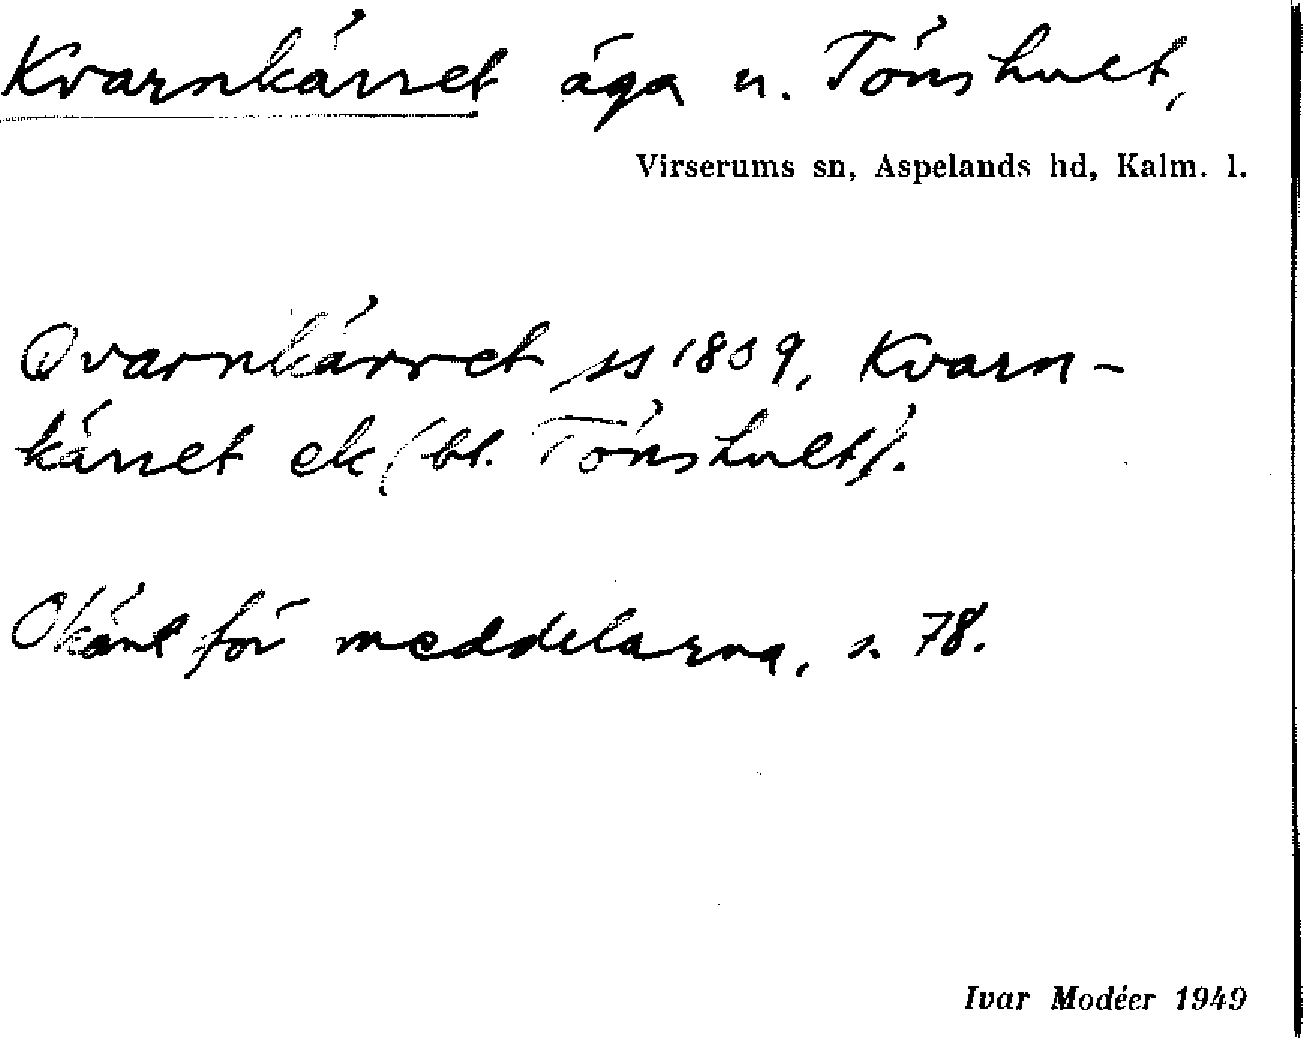 Kvarnkärret äga u. Tönshult,
Virserums sn, Aspelands hd, Kalm. l.
Qvarnkärret ss 1839, Kvarn-
kärret ek (bl. Tönshult).
Okänt för meddelarna, s. 78.
Ivar Modéer 1949